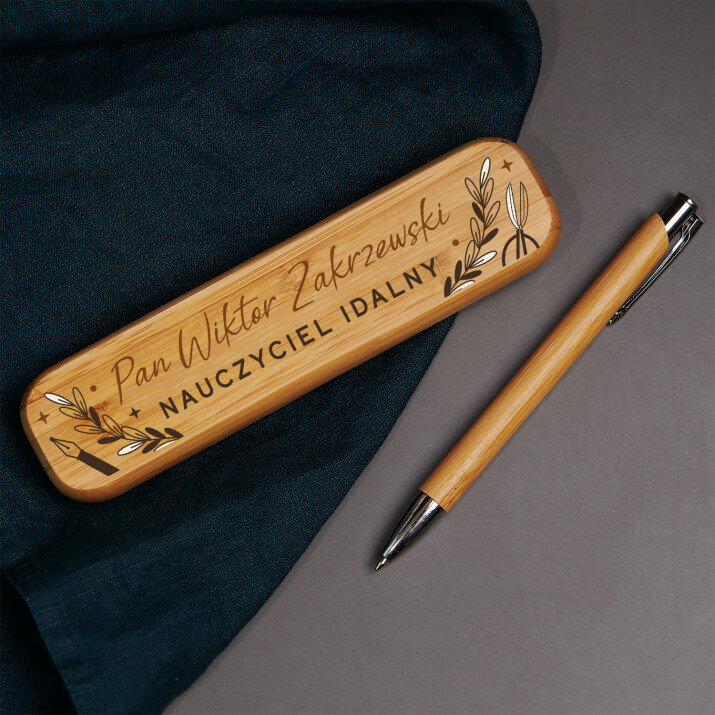 Pan Wiktor Zakrzewski
NAUCZYCIEL IDALNY